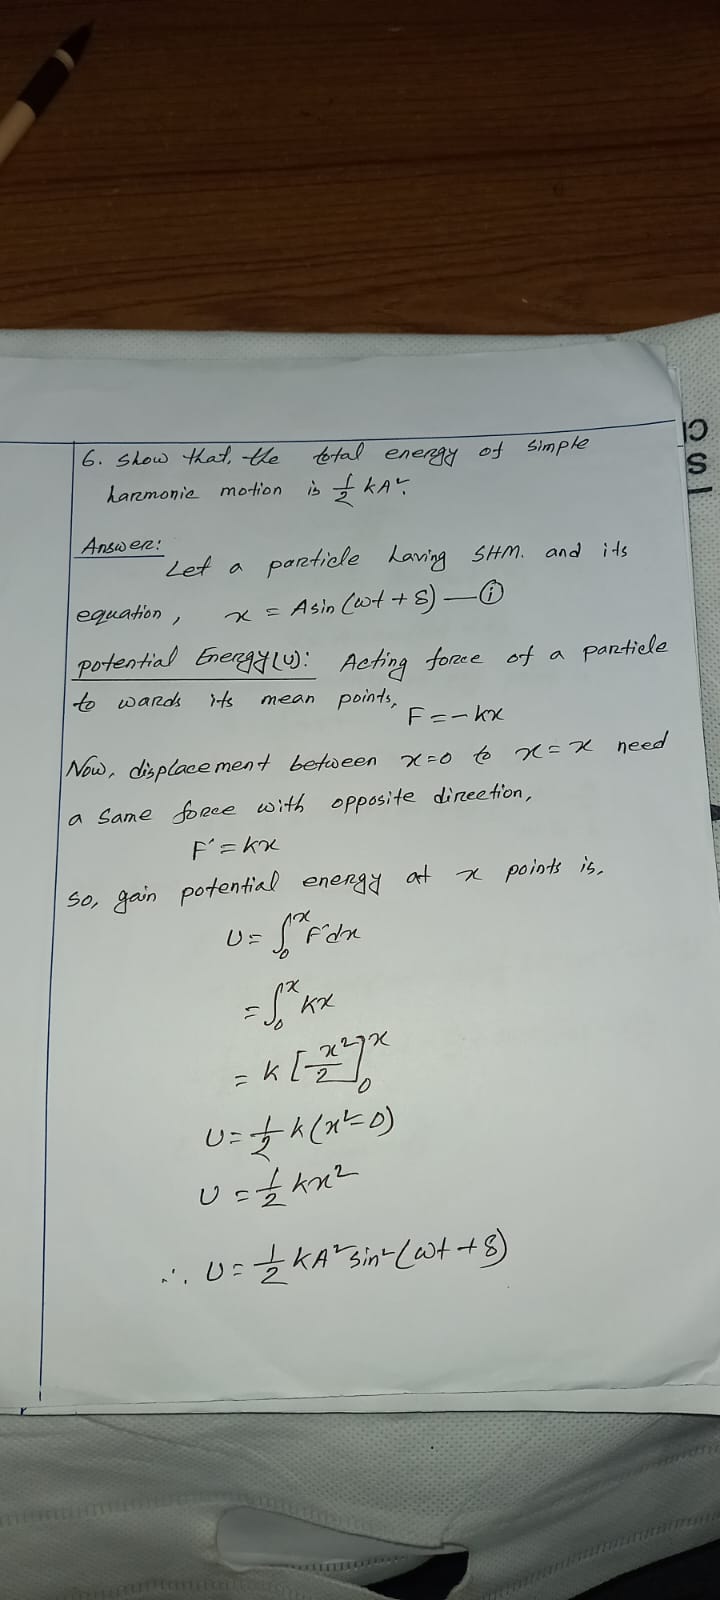 6. Show that, the total energy of simple
harmonic motion is 1/2 kA².
Answer:
Let a particle having SHM. and its
equation, x = Asin(ωt + δ) — ①
potential Energy(U): Acting force of a particle
to wards its mean points,
F = - kx
Now, displacement between x=0 to x=x need
a same force with opposite direction,
F' = kx
So, gain potential energy at x points is,
U = ∫₀ˣ F'dx
= ∫₀ˣ kx
= k [x²/2]₀ˣ
U = 1/2 k(x²-0)
U = 1/2 kx²
∴ U = 1/2 kA² sin²(ωt + δ)